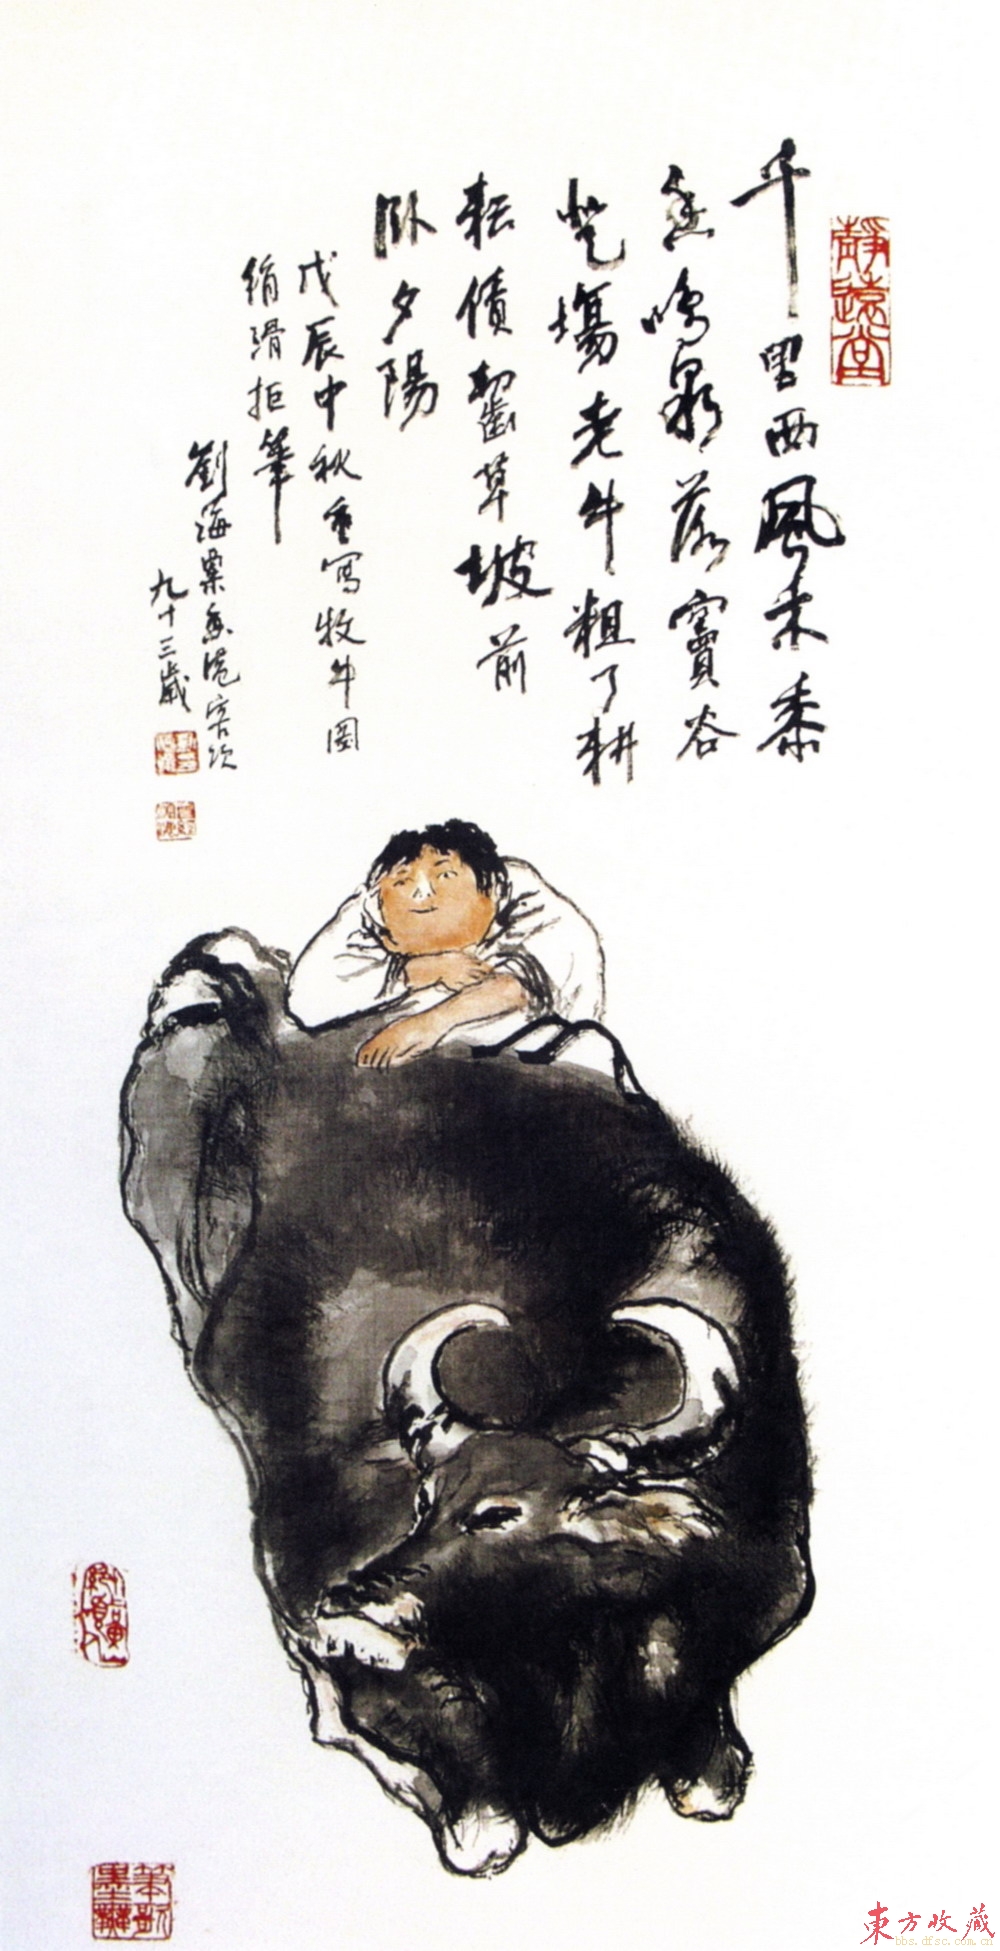 靜遠堂
千里西風禾黍
香鳴泉落竇谷
登場老牛粗了耕
耘債齧草坡前
臥夕陽
戊辰中秋重寫牧牛圖
絹滑拒筆
劉海粟香港客次
九十三歲
筆歌墨舞
東方收藏
bbs.dfsc.com.cn